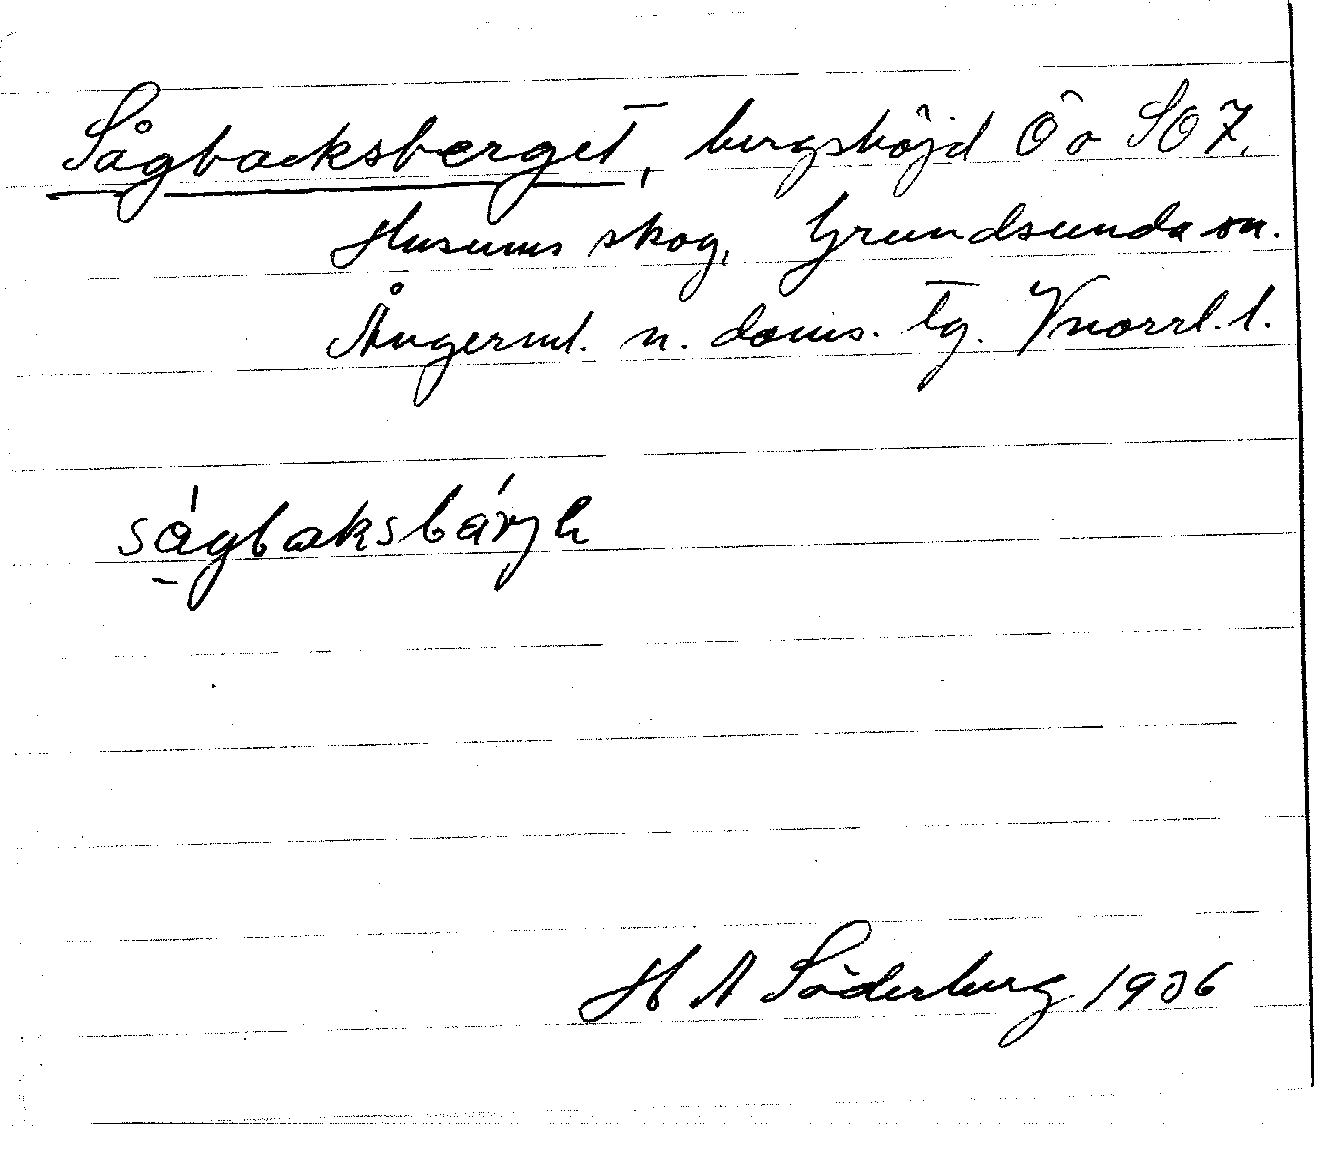 Sågbacksberget, bergshöjd Ö o SO 7.
Husums skog, Grundsunda sn.
Ångerml. n. doms. tg. Vnorrl. l.
ságbaksbár̨h
H A Söderberg 1936